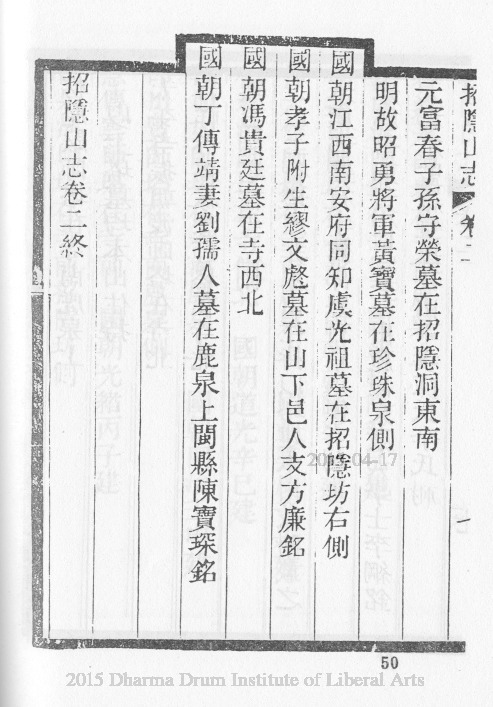 招隱山志 卷二
元富春子孫守榮墓在招隱洞東南
明故昭勇將軍黃寶墓在珍珠泉側
國朝江西南安府同知虞光祖墓在招隱坊右側
國朝孝子附生繆文彪墓在山下邑人支方廉銘
國朝馮貴廷墓在寺西北
國朝丁傳靖妻劉孺人墓在鹿泉上閩縣陳寶琛銘
招隱山志卷二終
2015-04-17
50
2015 Dharma Drum Institute of Liberal Arts